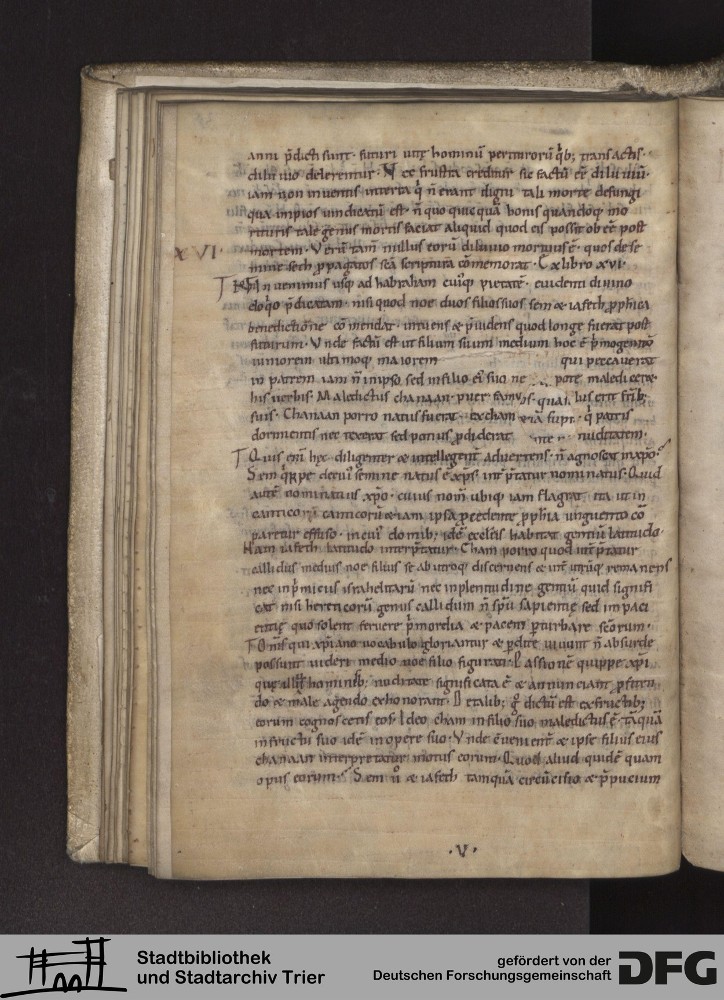 anni p̄dicti sunt · futuri uitę hominū perituroꝝ q̇b; transactis ·
diluuio delerentur · Nec frustra creditur sic factū eē diluuiū ·
iam non inuentis in terra q̇ n̄ erant digni tali morte defungi
qua in impios uindicatū est · n̄ quo quicquā bonis quandoq; mo
rituris tale genus mortis faciat aliquid quod eis possit ob eē post
mortem · Verū tam̄ nullus eorū diluuio mortuus ē · quos de se
XVI ·
mine seth ꝓpagatos scā scriptura cōmemorat · Ex libro xvi ·
n̄ uenimus usq; ad habraham cuiq̄ pietatē · euidenti diuino
eloq̇o p̄dicatam · nisi quod noe duos filios suos sem & iafeth ꝓphica
benedictione cōmendat · intuens & p̄uidens quod longe fuerat post
futurum · Vnde factū est ut filium suum medium hoc ē p̄mogenito
iuniorem ultimoq; maiorem qui peccauerat
in patrem iam n̄ in ipso sed in filio ei' suo ne pote maledicere ·
his uerbis · Maledictus chanaan · puer famulus erit frīb;
suis · Chanaan porro natus fuerat ex cham q̇ patris
dormientis nec texerat sed potius ꝓdiderat nuditatem ·
Quis eni hęc diligenter & intellegent' aduertens · n̄ agnoscat in xp̄o?
Sem q̇ppe de cui' semine natus ē xp̄s · int'p̄tatur nominatus · Quid
autē nominatius xp̄o · cuius nom̄ ubiq; iam flagrat · ita ut in
canticorū canticorū etiam ipsa p̄cedente ꝓphia unguento cō
paretur effuso · in cui' domib; idē ecclesiis habitat gentiū latitudo ·
Nam iafeth latitudo interp̄tatur · Cham porro quod int'p̄tatur
callidus medius noe filius se ab utroq; discernens & int' utrūq; remanens
nec in p̄miciis israhelitarū nec in plenitudine gentiū quid signifi
cat nisi hereticorū genus callidum n̄ sp̄u sapientię sed in paci
entię quo solent feruere p̄morelia & pacem ꝑturbare sc̄orum ·
Om̄s qui xp̄iano uocabulo gloriantur & ꝑdite uiuunt n̄ absurde
possunt uideri medio noe filio figurati · Passionē quippe xp̄i
que illi' hominis nuditate significata ē & annunciant p̄fiten
do & male agendo exhonorant · De talib; g̊ dictū est ex fructib;
eorum cognoscetis eos · Ideo cham in filio suo maledictus ē · tāquā
in fructu suo idē in opere suo · Vnde cuenienter & ipse filius eius
chanaan interpretatur motus eorum · Quod aliud quidē quam
opus eorum · Sem u° & iafeth tamquā circūcisio & p̄pucium
· V ·
Stadtbibliothek
und Stadtarchiv Trier
gefördert von der
Deutschen Forschungsgemeinschaft
DFG